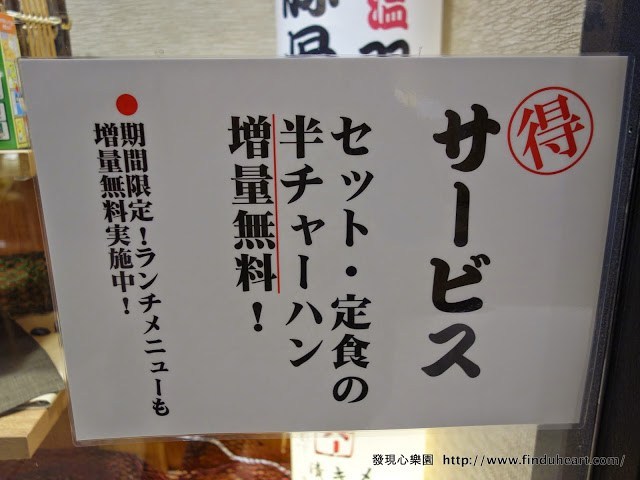 得
サービス
セット・定食の
半チャーハン
増量無料！
●期間限定！ランチメニューも
増量無料実施中！
發現心樂園 http://www.finduheart.com/